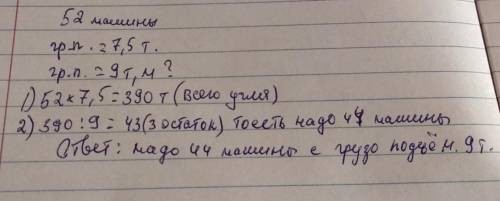 52 машины
гр.п. = 7,5 т.
гр.п. = 9т, м ?
1) 52 × 7,5 = 390 т (всего угля)
2) 390 : 9 = 43 (3 остаток) тоесть надо 44 машины
Ответ: надо 44 машины с грузо подъё м. 9 т.